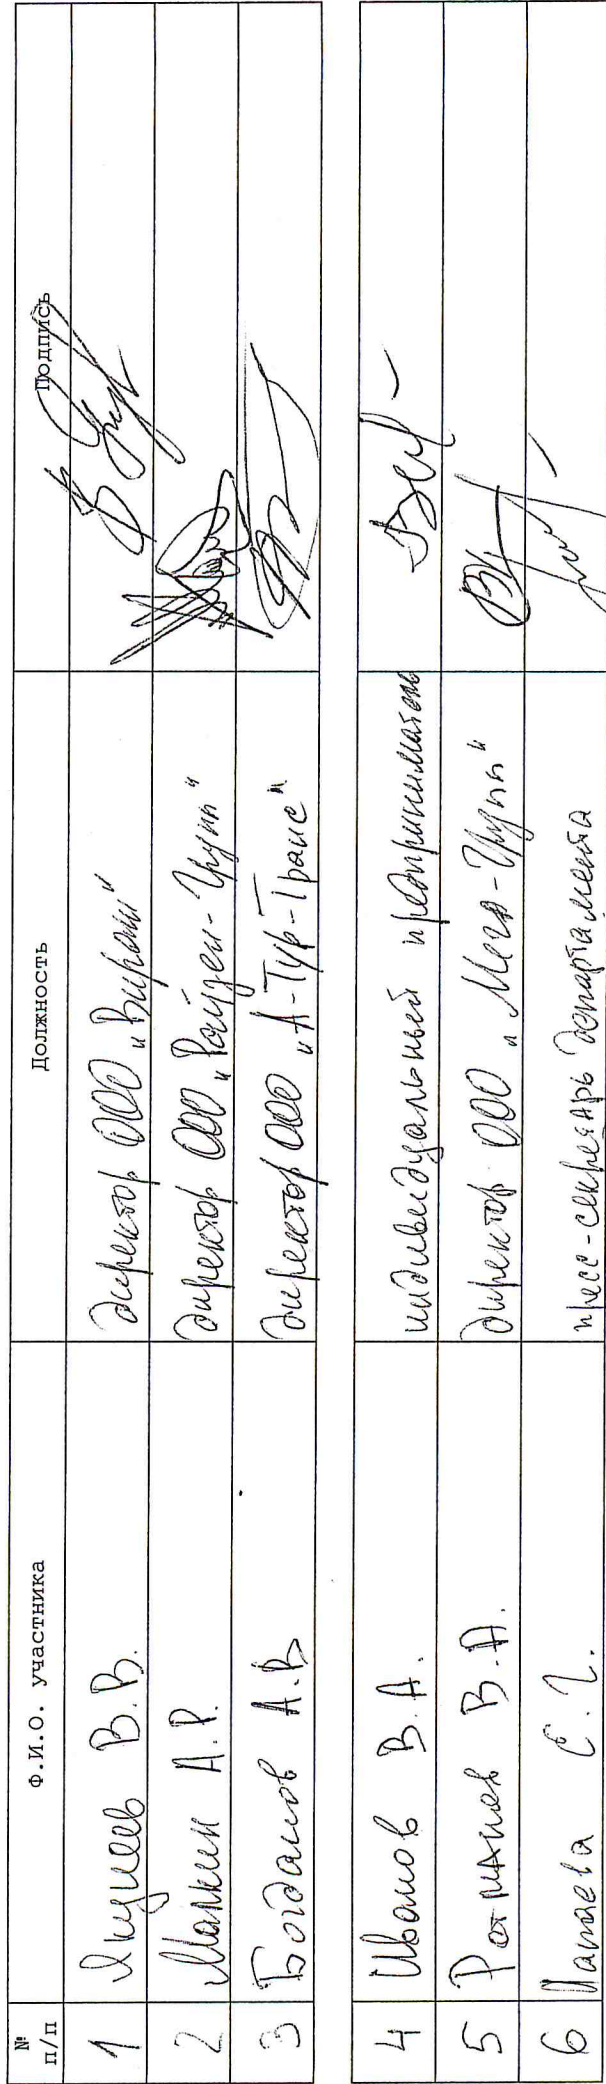 № п/п Ф.И.О. участника Должность Подпись
1 Якунеев В.В. директор ООО "Вираж"
2 Малкин А.Р. директор ООО "Райзен-Групп"
3 Богданов А.В директор ООО "А-Тур-Транс"
4 Иванов В.А. индивидуальный предприниматель
5 Ротманов В.А. директор ООО "Мега-Групп"
6 С.Г. пресс-секретарь департамента